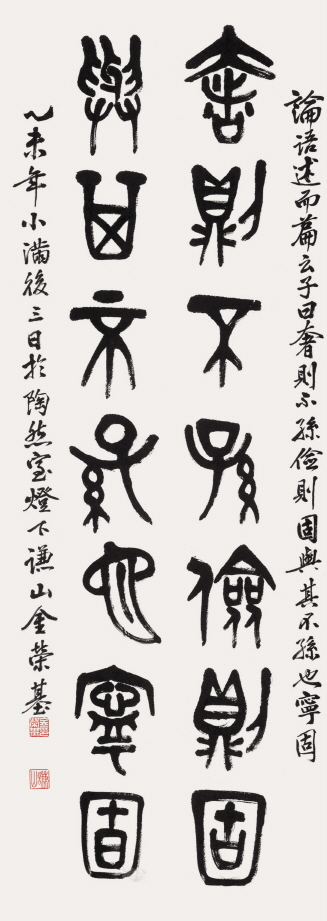 論語述而篇云子曰奢則不孫儉則固與其不孫也寧固
奢則不孫儉則固
與其不孫也寧固
乙未年小滿後三日於陶然室燈下謙山金榮基